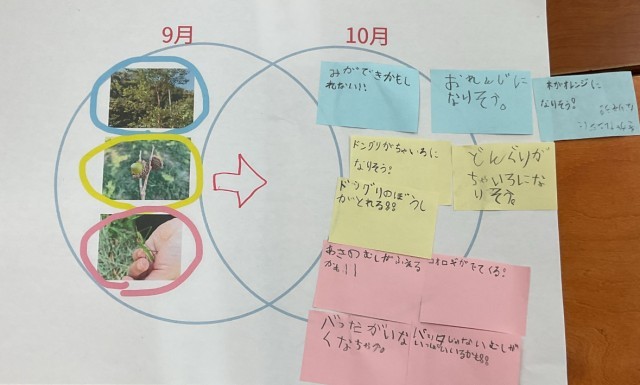 9月
10月
みができかもし
れない!!
おれんじに
なりそう。
木がオレンジに
なりそう!
ドングリがちゃいろに
なりそう!
どんぐりが
ちゃいろにな
りそう。
ドングリのぼうし
がとれる
あきのむしがふえる
かも!!
コオロギがでてくる!
バッたがいな
くなちゃう。
バッタじゃないむしが
いっぱいいるかも